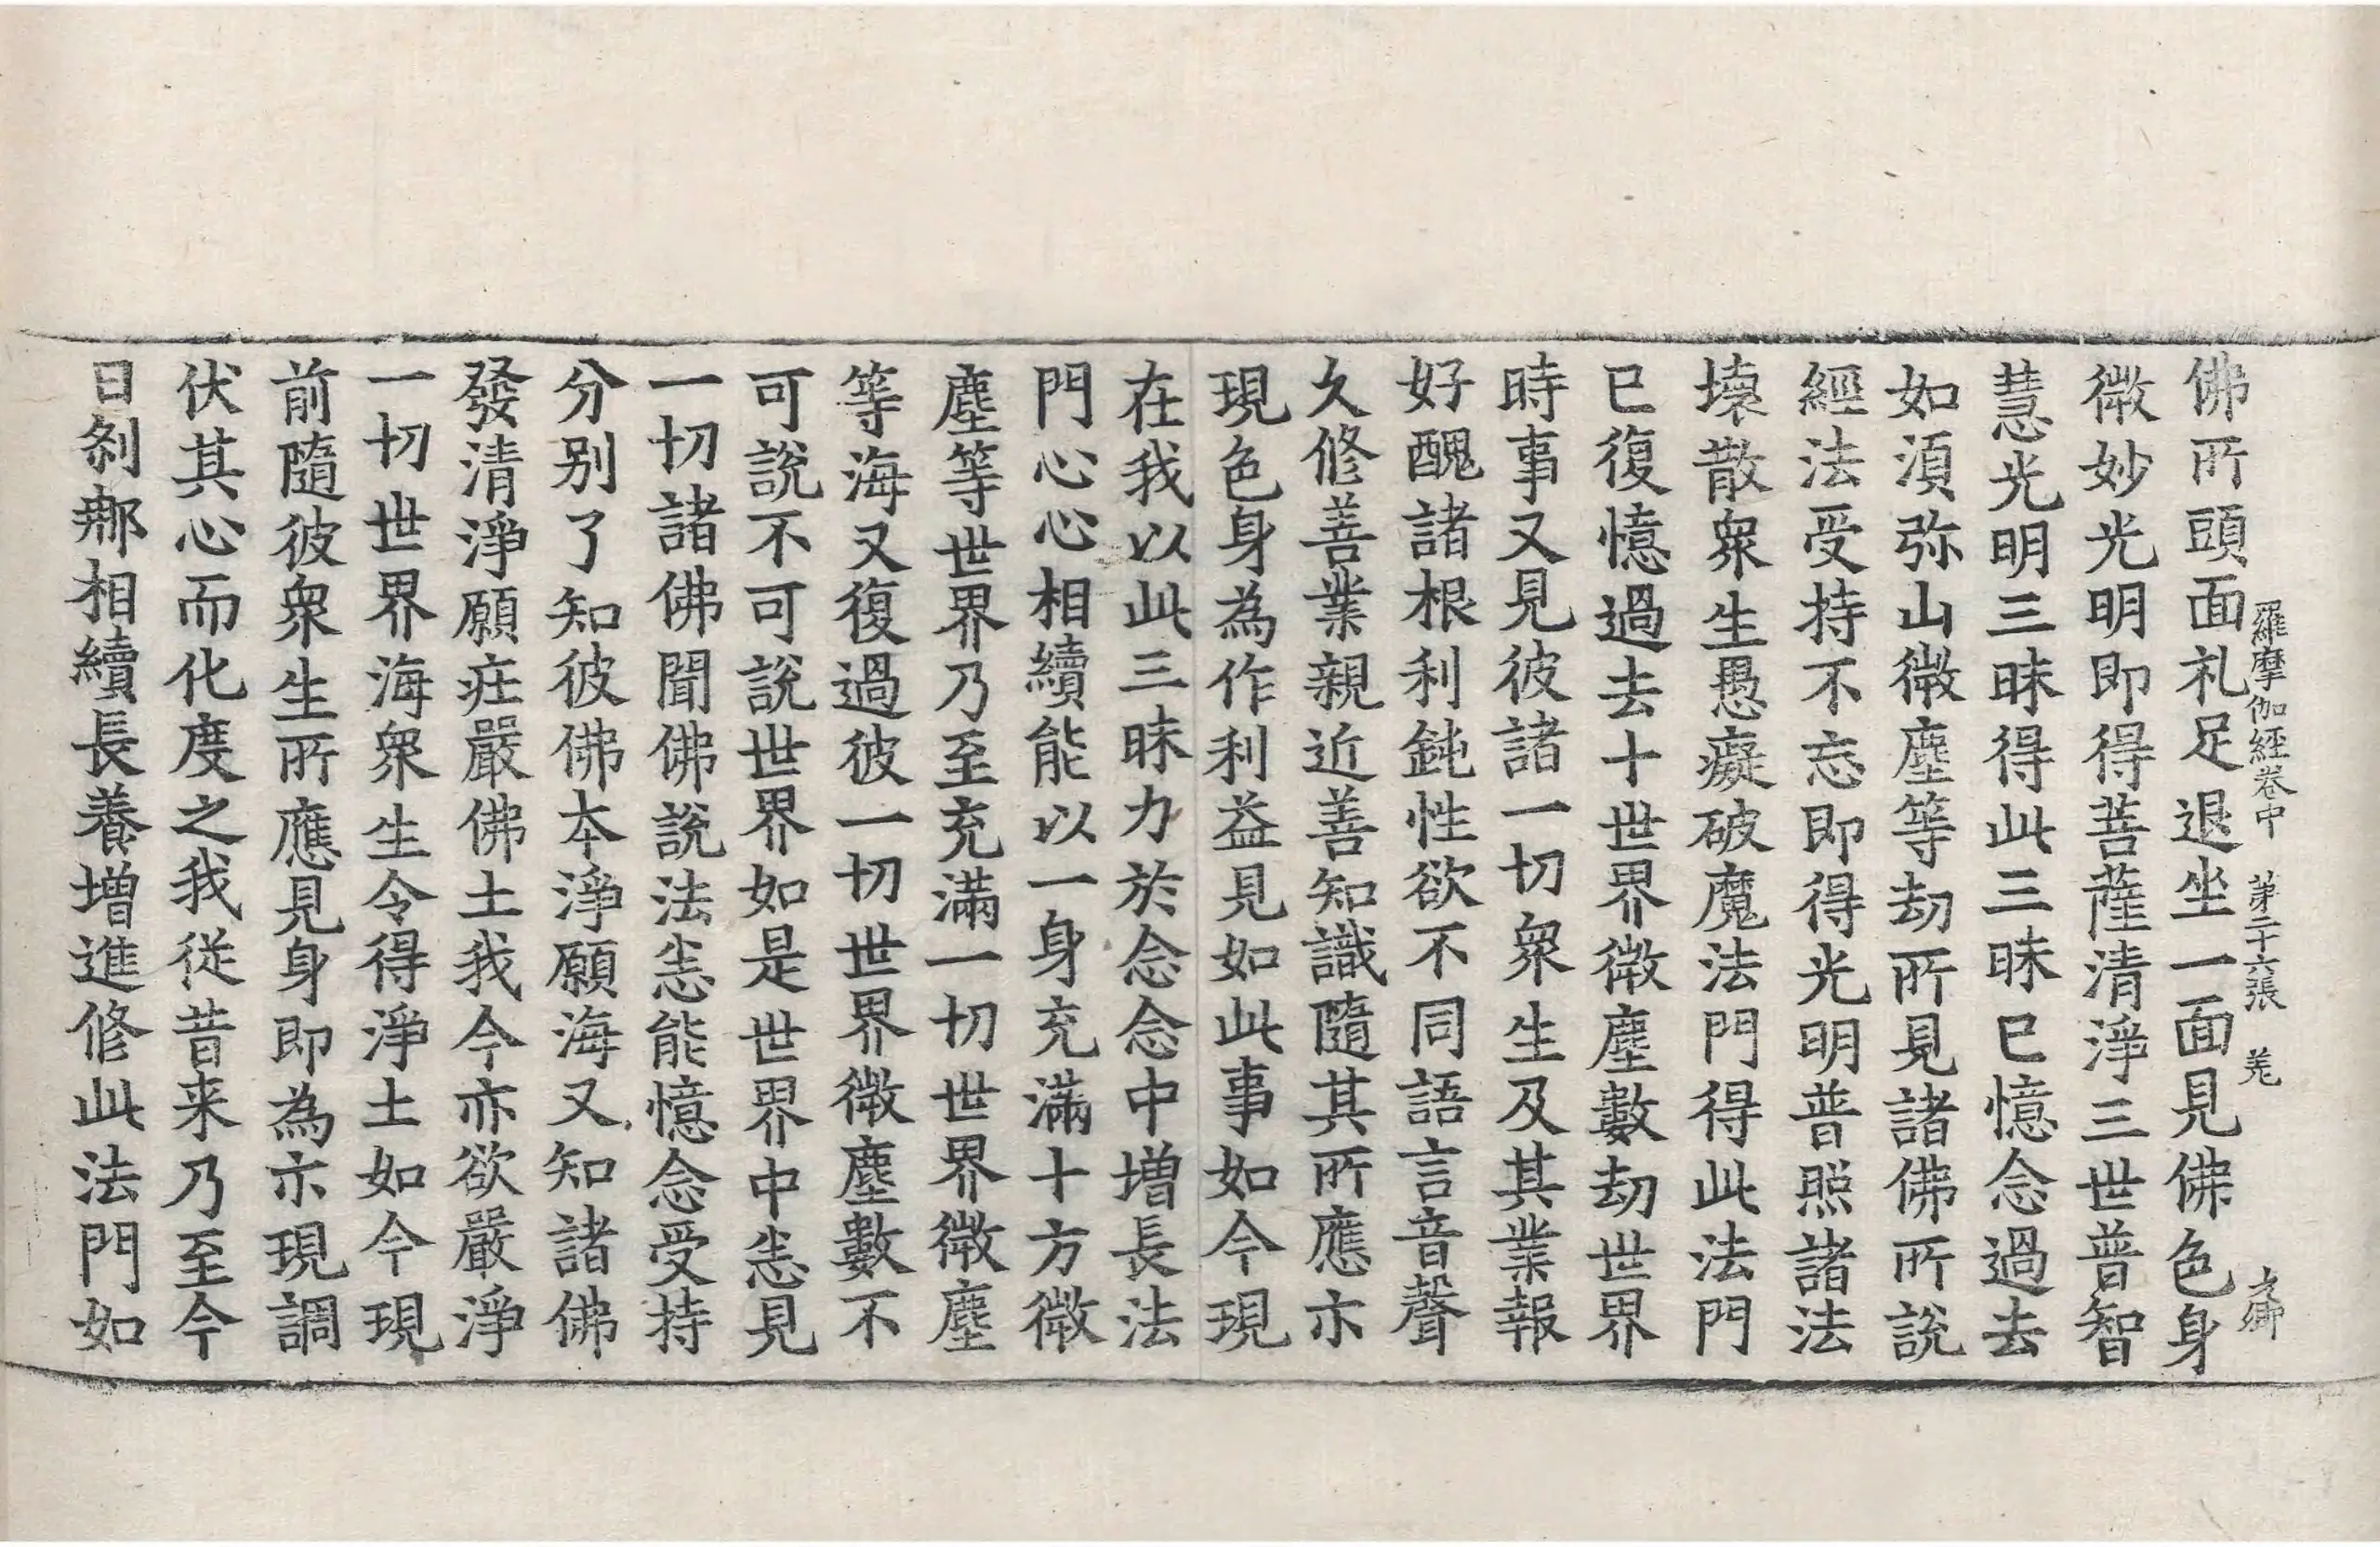 羅摩伽經卷中 苐二十六張 羌
佛所頭面礼足退坐一面見佛色身
微妙光明即得菩薩清淨三世普智
慧光明三昧得此三昧已憶念過去
如湏弥山微塵等劫所見諸佛所說
經法受持不忘即得光明普照諸法
壞散衆生愚癡破魔法門得此法門
已復憶過去十世界微塵數劫世界
時事又見彼諸一切衆生及其業報
好醜諸根利鈍性欲不同語言音聲
久修善業親近善知識隨其所應示
現色身為作利益見如此事如今現
在我以此三昧力於念念中增長法
門心心相續能以一身充滿十方微
塵等世界乃至充滿一切世界微塵
等海又復過彼一切世界微塵數不
可說不可說世界如是世界中悉見
一切諸佛聞佛說法悉能憶念受持
分別了知彼佛本淨願海又知諸佛
發清淨願疰嚴佛土我今亦欲嚴淨
一切世界海衆生令得淨土如今現
前隨彼衆生所應見身即為示現調
伏其心而化度之我從昔来乃至今
日刹那相續長養增進修此法門如